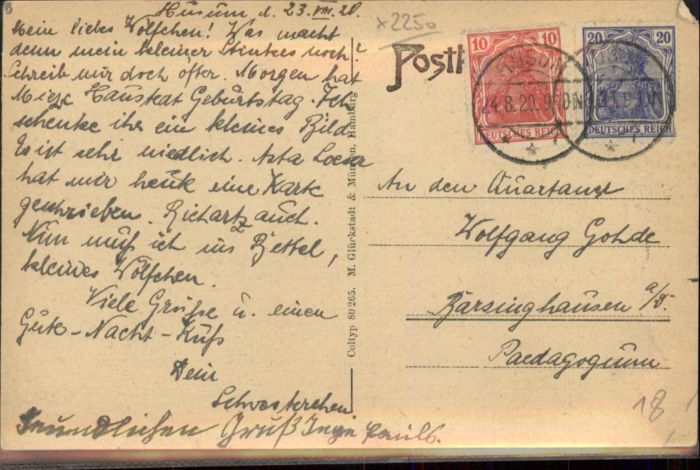 Husum d. 23. VIII. 20.
Mein liebes Wölfchen! Was macht
denn mein kleiner Stinkes noch?
Schreib mir doch öfter. Morgen hat
Mieze Geburtstag. Ich
schenke ihr ein kleines Bild
Es ist sehr niedlich. Asta
hat mir heute eine Karte
geschrieben. auch.
Nun muß ich ins Bettel,
kleines Wölfchen.
Viele Grüße u. einen
Gute-Nacht-Kuß
Dein
Schwesterchen
Freundlichen Gruß Inge
x2250
Postk
10 10
DEUTSCHES REICH
20 20
DEUTSCHES REICH
HUSUM
24.8.20.9-10N
An den Quartaner
Wolfgang Gohde
Barsinghausen a/D.
Paedagogium
18
Coltyp 80265. M. Glückstadt & Münden, Hamburg